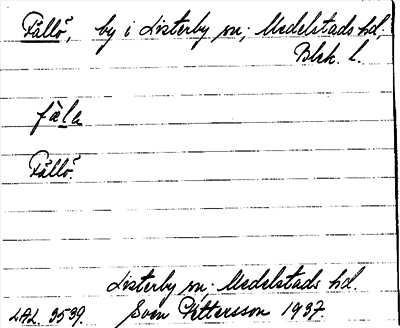 Fållö, by i Listerby sn, Medelstads hd,
Blek. l.
fàla
Fållö.
Listerby sn. Medelstads hd.
LAL. 3539. Sven Pettersson 1937.